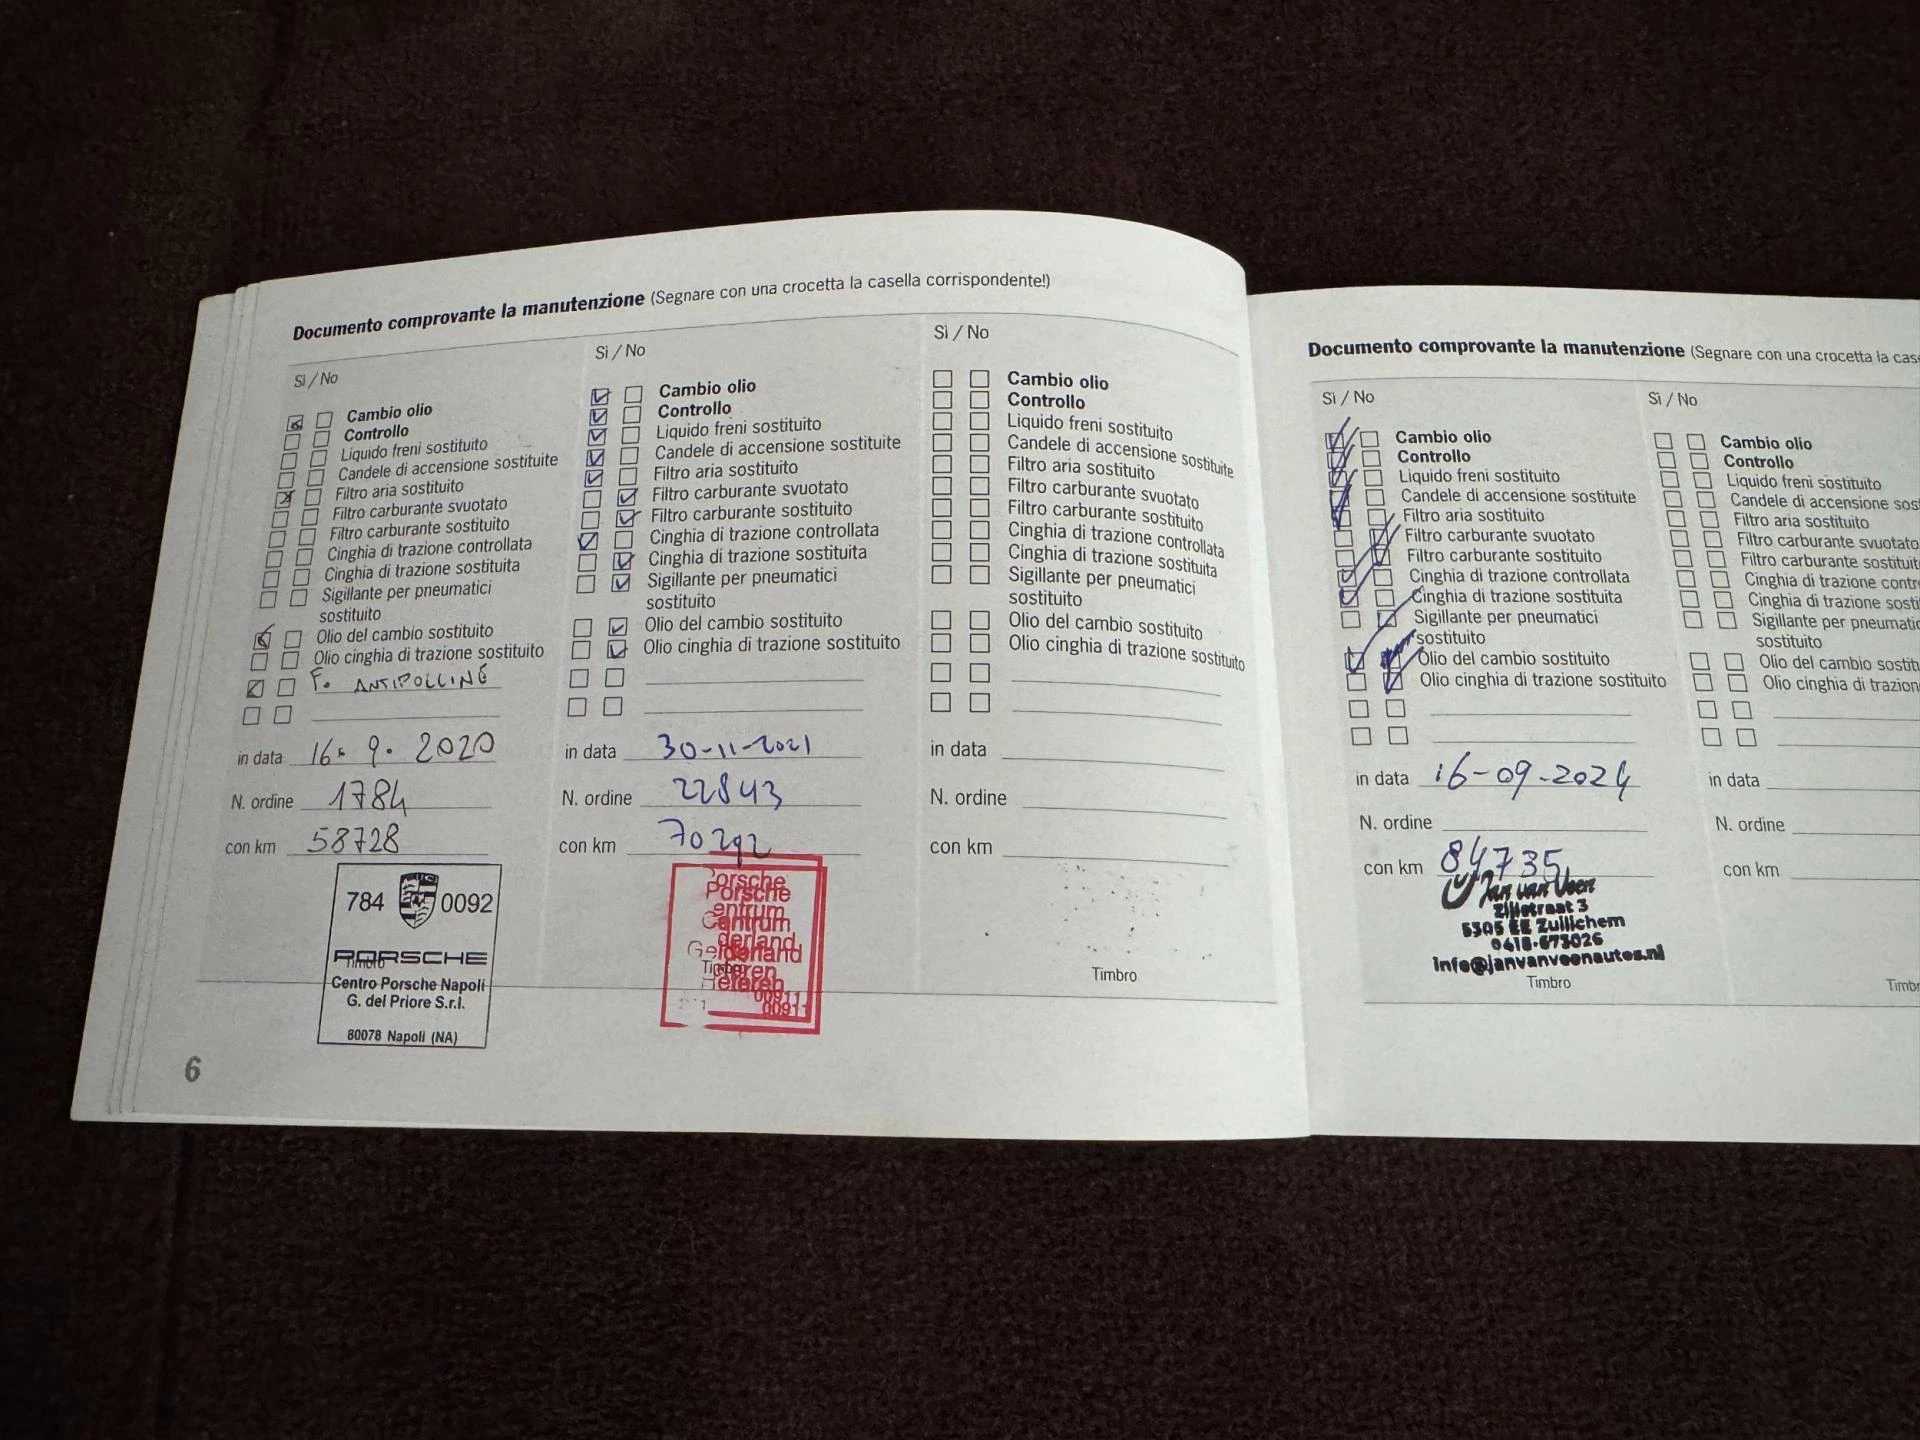 Documento comprovante la manutenzione (Segnare con una crocetta la casella corrispondente!)
Sì / No
Cambio olio
Controllo
Liquido freni sostituito
Candele di accensione sostituite
Filtro aria sostituito
Filtro carburante svuotato
Filtro carburante sostituito
Cinghia di trazione controllata
Cinghia di trazione sostituita
Sigillante per pneumatici
sostituito
Olio del cambio sostituito
Olio cinghia di trazione sostituito
F. ANTIPOLLINE
in data 16. 9. 2020
N. ordine 1784
con km 58728
784 0092
PORSCHE
Timbro
Centro Porsche Napoli
G. del Priore S.r.l.
80078 Napoli (NA)
6
Sì / No
Cambio olio
Controllo
Liquido freni sostituito
Candele di accensione sostituite
Filtro aria sostituito
Filtro carburante svuotato
Filtro carburante sostituito
Cinghia di trazione controllata
Cinghia di trazione sostituita
Sigillante per pneumatici
sostituito
Olio del cambio sostituito
Olio cinghia di trazione sostituito
in data 30-11-2021
N. ordine 22843
con km 70292
Porsche
Centrum
Gelderland
Heteren
00911
Sì / No
Cambio olio
Controllo
Liquido freni sostituito
Candele di accensione sostituite
Filtro aria sostituito
Filtro carburante svuotato
Filtro carburante sostituito
Cinghia di trazione controllata
Cinghia di trazione sostituita
Sigillante per pneumatici
sostituito
Olio del cambio sostituito
Olio cinghia di trazione sostituito
in data
N. ordine
con km
Timbro
Documento comprovante la manutenzione (Segnare con una crocetta la case
Sì / No
Cambio olio
Controllo
Liquido freni sostituito
Candele di accensione sostituite
Filtro aria sostituito
Filtro carburante svuotato
Filtro carburante sostituito
Cinghia di trazione controllata
Cinghia di trazione sostituita
Sigillante per pneumatici
sostituito
Olio del cambio sostituito
Olio cinghia di trazione sostituito
in data 16-09-2024
N. ordine
con km 84735
Jan van Veen
3
5305 EE Zuilichem
0418-673026
info@janvanveenautos.nl
Timbro
Sì / No
Cambio olio
Controllo
Liquido freni sostituito
Candele di accensione sos
Filtro aria sostituito
Filtro carburante svuotato
Filtro carburante sostituit
Cinghia di trazione contr
Cinghia di trazione sosti
Sigillante per pneumatic
sostituito
Olio del cambio sostitu
Olio cinghia di trazion
in data
N. ordine
con km
Timbr